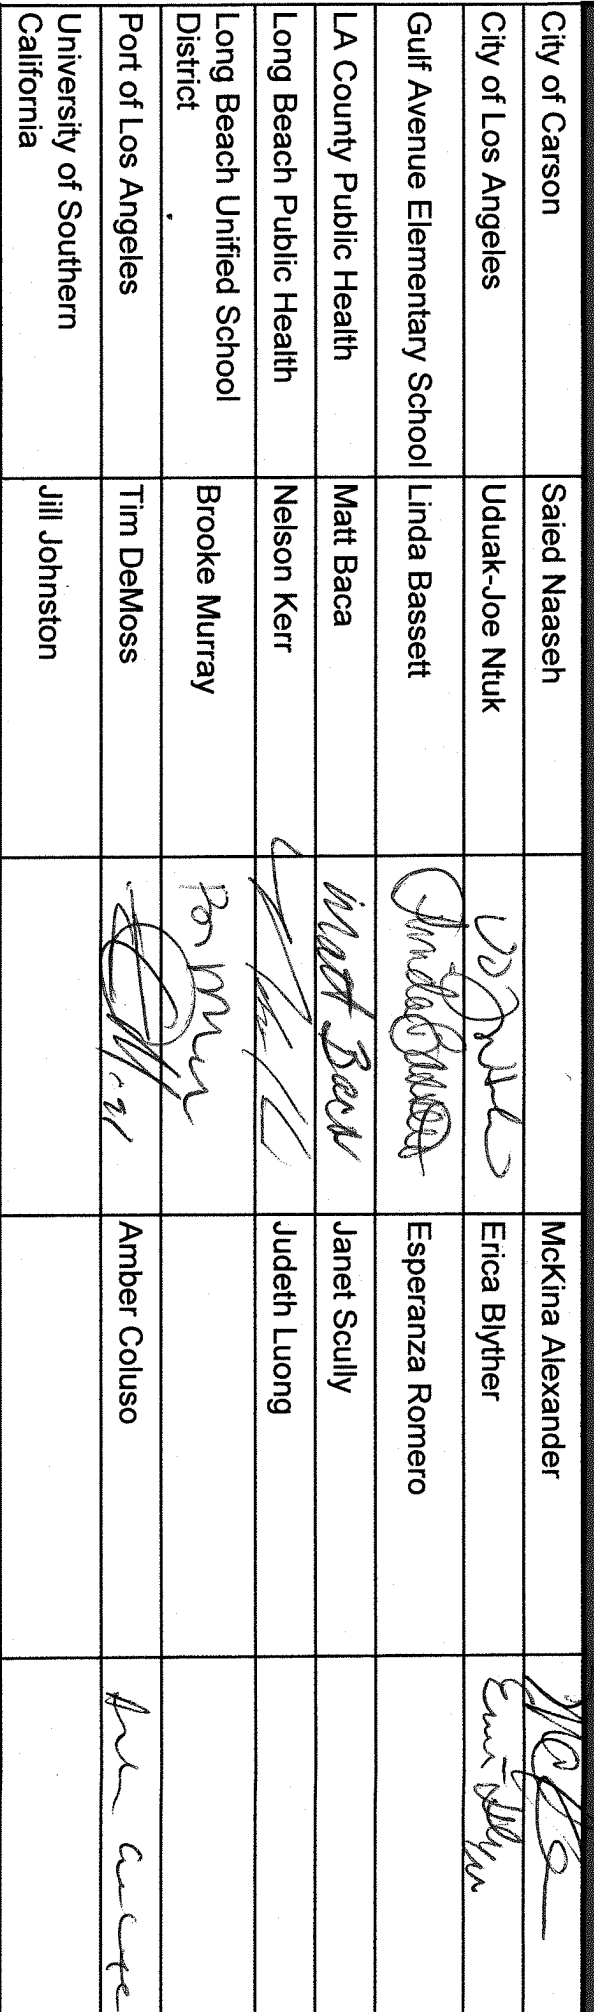 City of Carson Saied Naaseh McKina Alexander
City of Los Angeles Uduak-Joe Ntuk Erica Blyther
Gulf Avenue Elementary School Linda Bassett Linda Bassett Esperanza Romero
LA County Public Health Matt Baca Matt Baca Janet Scully
Long Beach Public Health Nelson Kerr Judeth Luong
Long Beach Unified School Brooke Murray
District
Port of Los Angeles Tim DeMoss Amber Coluso
University of Southern Jill Johnston
California